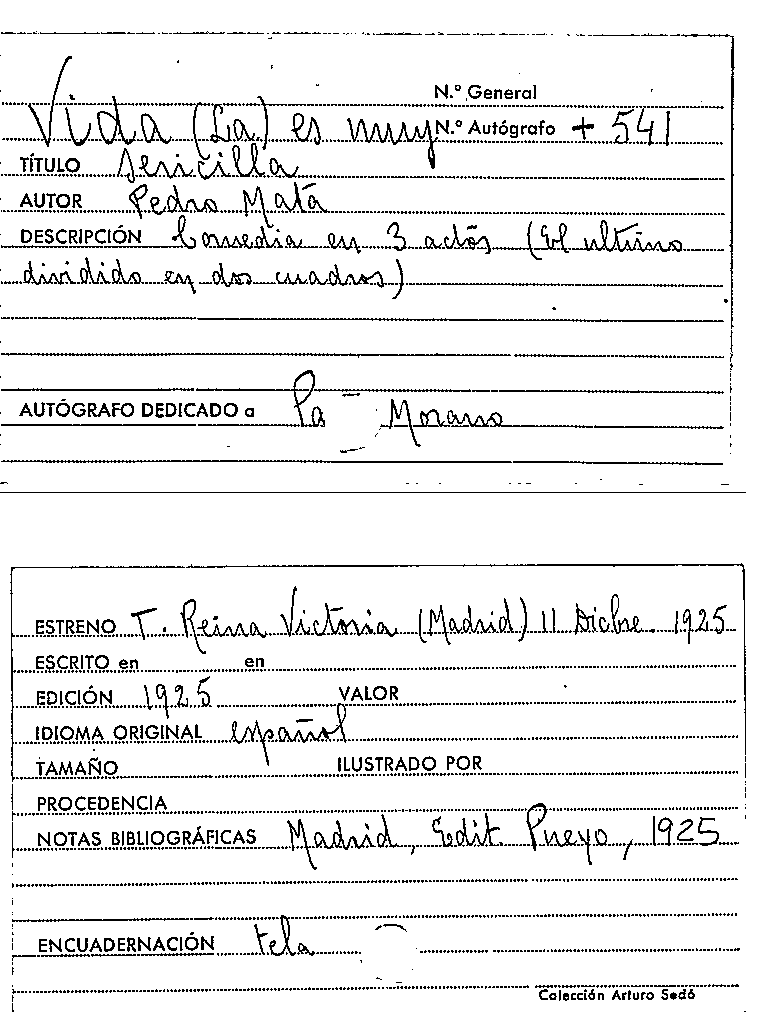 N.º General
Vida (La) es muy N.º Autógrafo + 541
TÍTULO sencilla
AUTOR Pedro Mata
DESCRIPCIÓN Comedia en 3 actos (El ultimo
dividido en dos cuadros)
AUTÓGRAFO DEDICADO a Pa Morano
ESTRENO T. Reina Victoria (Madrid) 11 Dicbre. 1925
ESCRITO en en
EDICIÓN 1925 VALOR
IDIOMA ORIGINAL español
TAMAÑO ILUSTRADO POR
PROCEDENCIA
NOTAS BIBLIOGRÁFICAS Madrid, Edit. Pueyo, 1925
ENCUADERNACIÓN tela
Colección Arturo Sedó